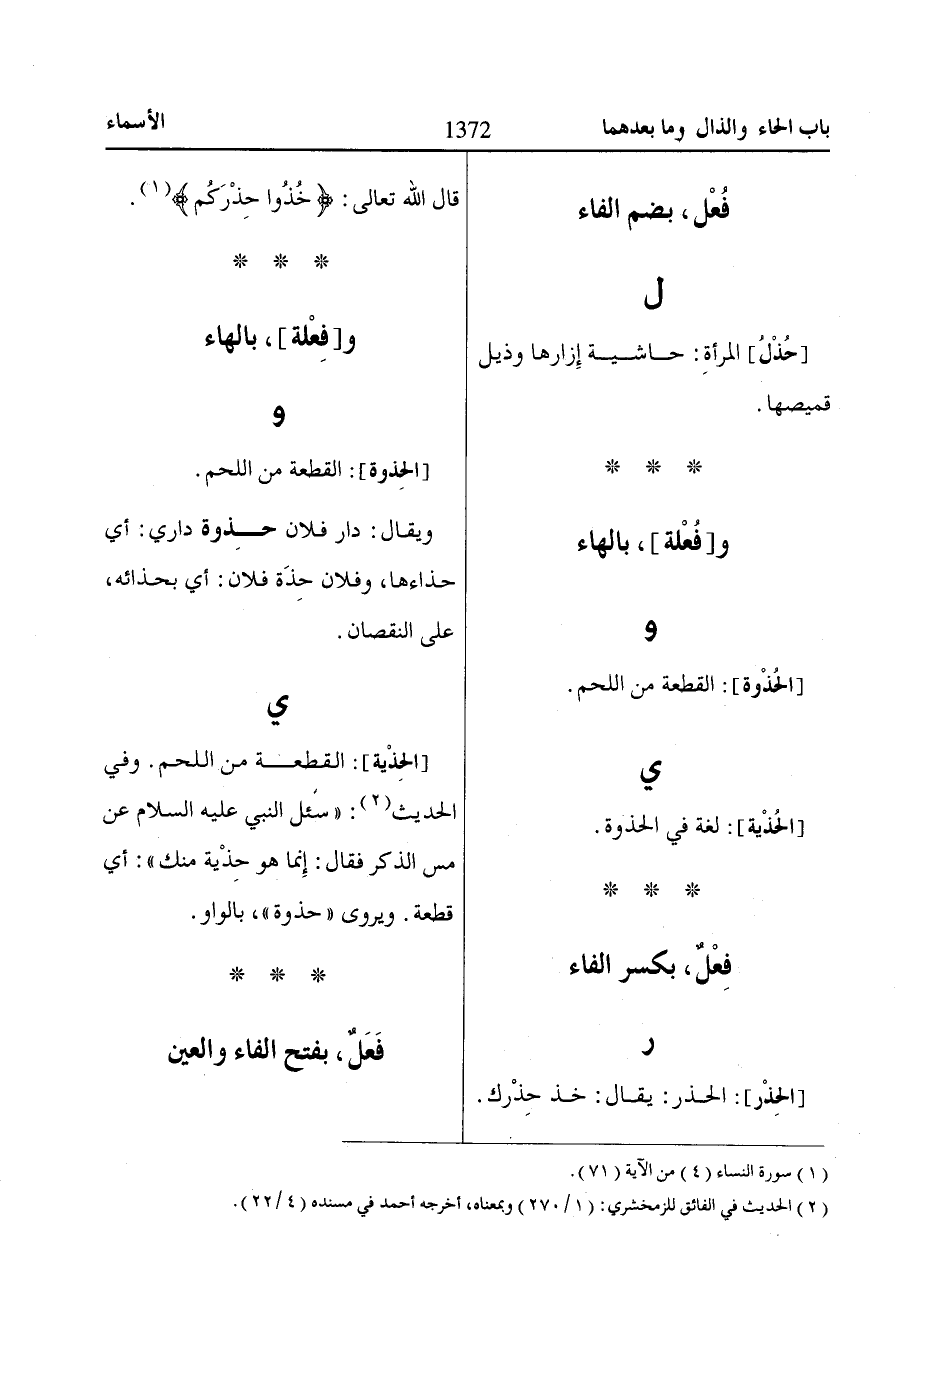 باب الحاء والذال وما بعدهما
1372
الأسماء
فُعْل، بضم الفاء
ل
[حُذْلُ] المرأة: حاشية إزارها وذيل
قميصها.
* * *
و[فُعْلة]، بالهاء
و
[الحُذْوة]: القطعة من اللحم.
ي
[الحُذْية]: لغة في الحذوة.
* * *
فِعْلٌ، بكسر الفاء
ر
[الحِذْر]: الحذر: يقال: خذ حِذْرك.
قال الله تعالى: ﴿خُذُوا حِذْرَكُم﴾(١).
* * *
و[فِعْلة]، بالهاء
و
[الحِذوة]: القطعة من اللحم.
ويقال: دار فلان حِذوة داري: أي
حذاءها، وفلان حِذَة فلان: أي بحذائه،
على النقصان.
ي
[الحِذْية]: القطعة من اللحم. وفي
الحديث(٢): «سئل النبي عليه السلام عن
مس الذكر فقال: إنما هو حِذْية منك»: أي
قطعة. ويروى «حذوة»، بالواو.
* * *
فَعَلٌ، بفتح الفاء والعين
(١) سورة النساء (٤) من الآية (٧١).
(٢) الحديث في الفائق للزمخشري: (١/ ٢٧٠) وبمعناه، أخرجه أحمد في مسنده (٤/ ٢٢).